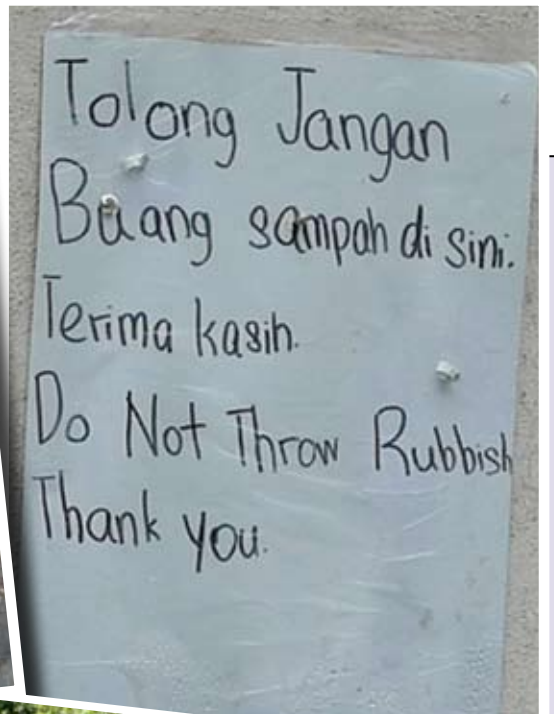 Tolong Jangan
Buang sampah di sini.
Terima kasih.
Do Not Throw Rubbish
Thank you.